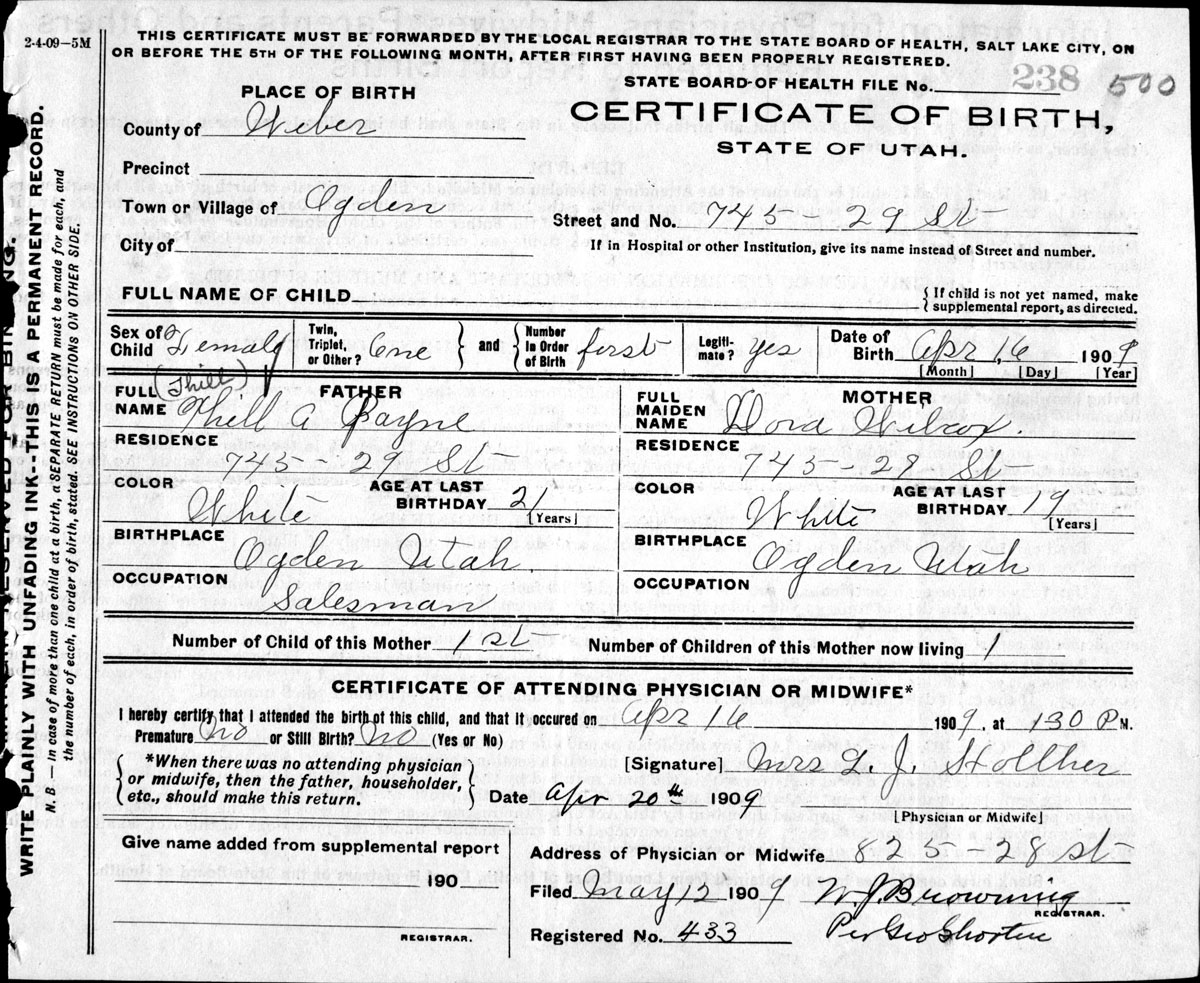 2-4-09-5M
THIS CERTIFICATE MUST BE FORWARDED BY THE LOCAL REGISTRAR TO THE STATE BOARD OF HEALTH, SALT LAKE CITY, ON
OR BEFORE THE 5TH OF THE FOLLOWING MONTH, AFTER FIRST HAVING BEEN PROPERLY REGISTERED.
STATE BOARD-OF HEALTH FILE No. 238 500
PLACE OF BIRTH
CERTIFICATE OF BIRTH,
STATE OF UTAH.
County of Weber
Precinct
Town or Village of Ogden
Street and No. 745 - 29 St
City of
If in Hospital or other Institution, give its name instead of Street and number.
FULL NAME OF CHILD
{ If child is not yet named, make
supplemental report, as directed.
Sex of Child Female
Twin, Triplet, or Other? One } and { Number In Order of Birth first
Legiti-mate? yes
Date of Birth Apr 16 1909
[Month] [Day] [Year]
FATHER
FULL NAME (Thill) Thill A Payne
RESIDENCE
745 29 St
COLOR White
AGE AT LAST BIRTHDAY 21
[Years]
BIRTHPLACE
Ogden Utah.
OCCUPATION
Salesman
MOTHER
FULL MAIDEN NAME Dora Wilcox.
RESIDENCE
745 - 29 St
COLOR White
AGE AT LAST BIRTHDAY 19
[Years]
BIRTHPLACE
Ogden Utah
OCCUPATION
Number of Child of this Mother 1st
Number of Children of this Mother now living 1
CERTIFICATE OF ATTENDING PHYSICIAN OR MIDWIFE*
I hereby certify that I attended the birth of this child, and that it occured on Apr 16 1909, at 130 P M.
Premature No or Still Birth? No (Yes or No)
{ *When there was no attending physician
or midwife, then the father, householder,
etc., should make this return. }
[Signature] Mrs L. J.
Date Apr 20th 1909
[Physician or Midwife]
Give name added from supplemental report
190
REGISTRAR.
Address of Physician or Midwife 825 - 28 st
Filed May 12 1909 W. J. Browning
REGISTRAR.
Registered No. 433
Per Geo Shorten
WRITE PLAINLY WITH UNFADING INK---THIS IS A PERMANENT RECORD.
N. B. — In case of more than one child at a birth, a SEPARATE RETURN must be made for each, and
the number of each, in order of birth, stated. SEE INSTRUCTIONS ON OTHER SIDE.